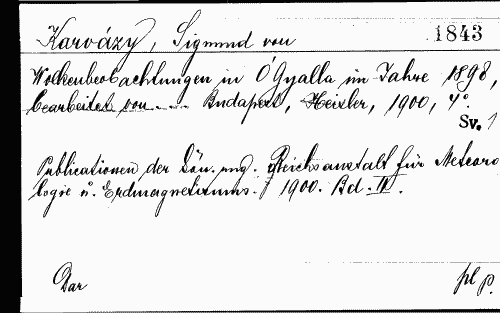 Karvázy, Sigmund von
1843
Wolkenbeobachtungen in O'Gyalla im Jahre 1898,
bearbeitet von.... Budapest, Heisler, 1900, 4°.
Sv. 1
Publicationen der Kön. ung. Reichsanstalt für Meteoro
logie u. Erdmagnetismus. 1900. Bd. IV.
Dar
pl p.